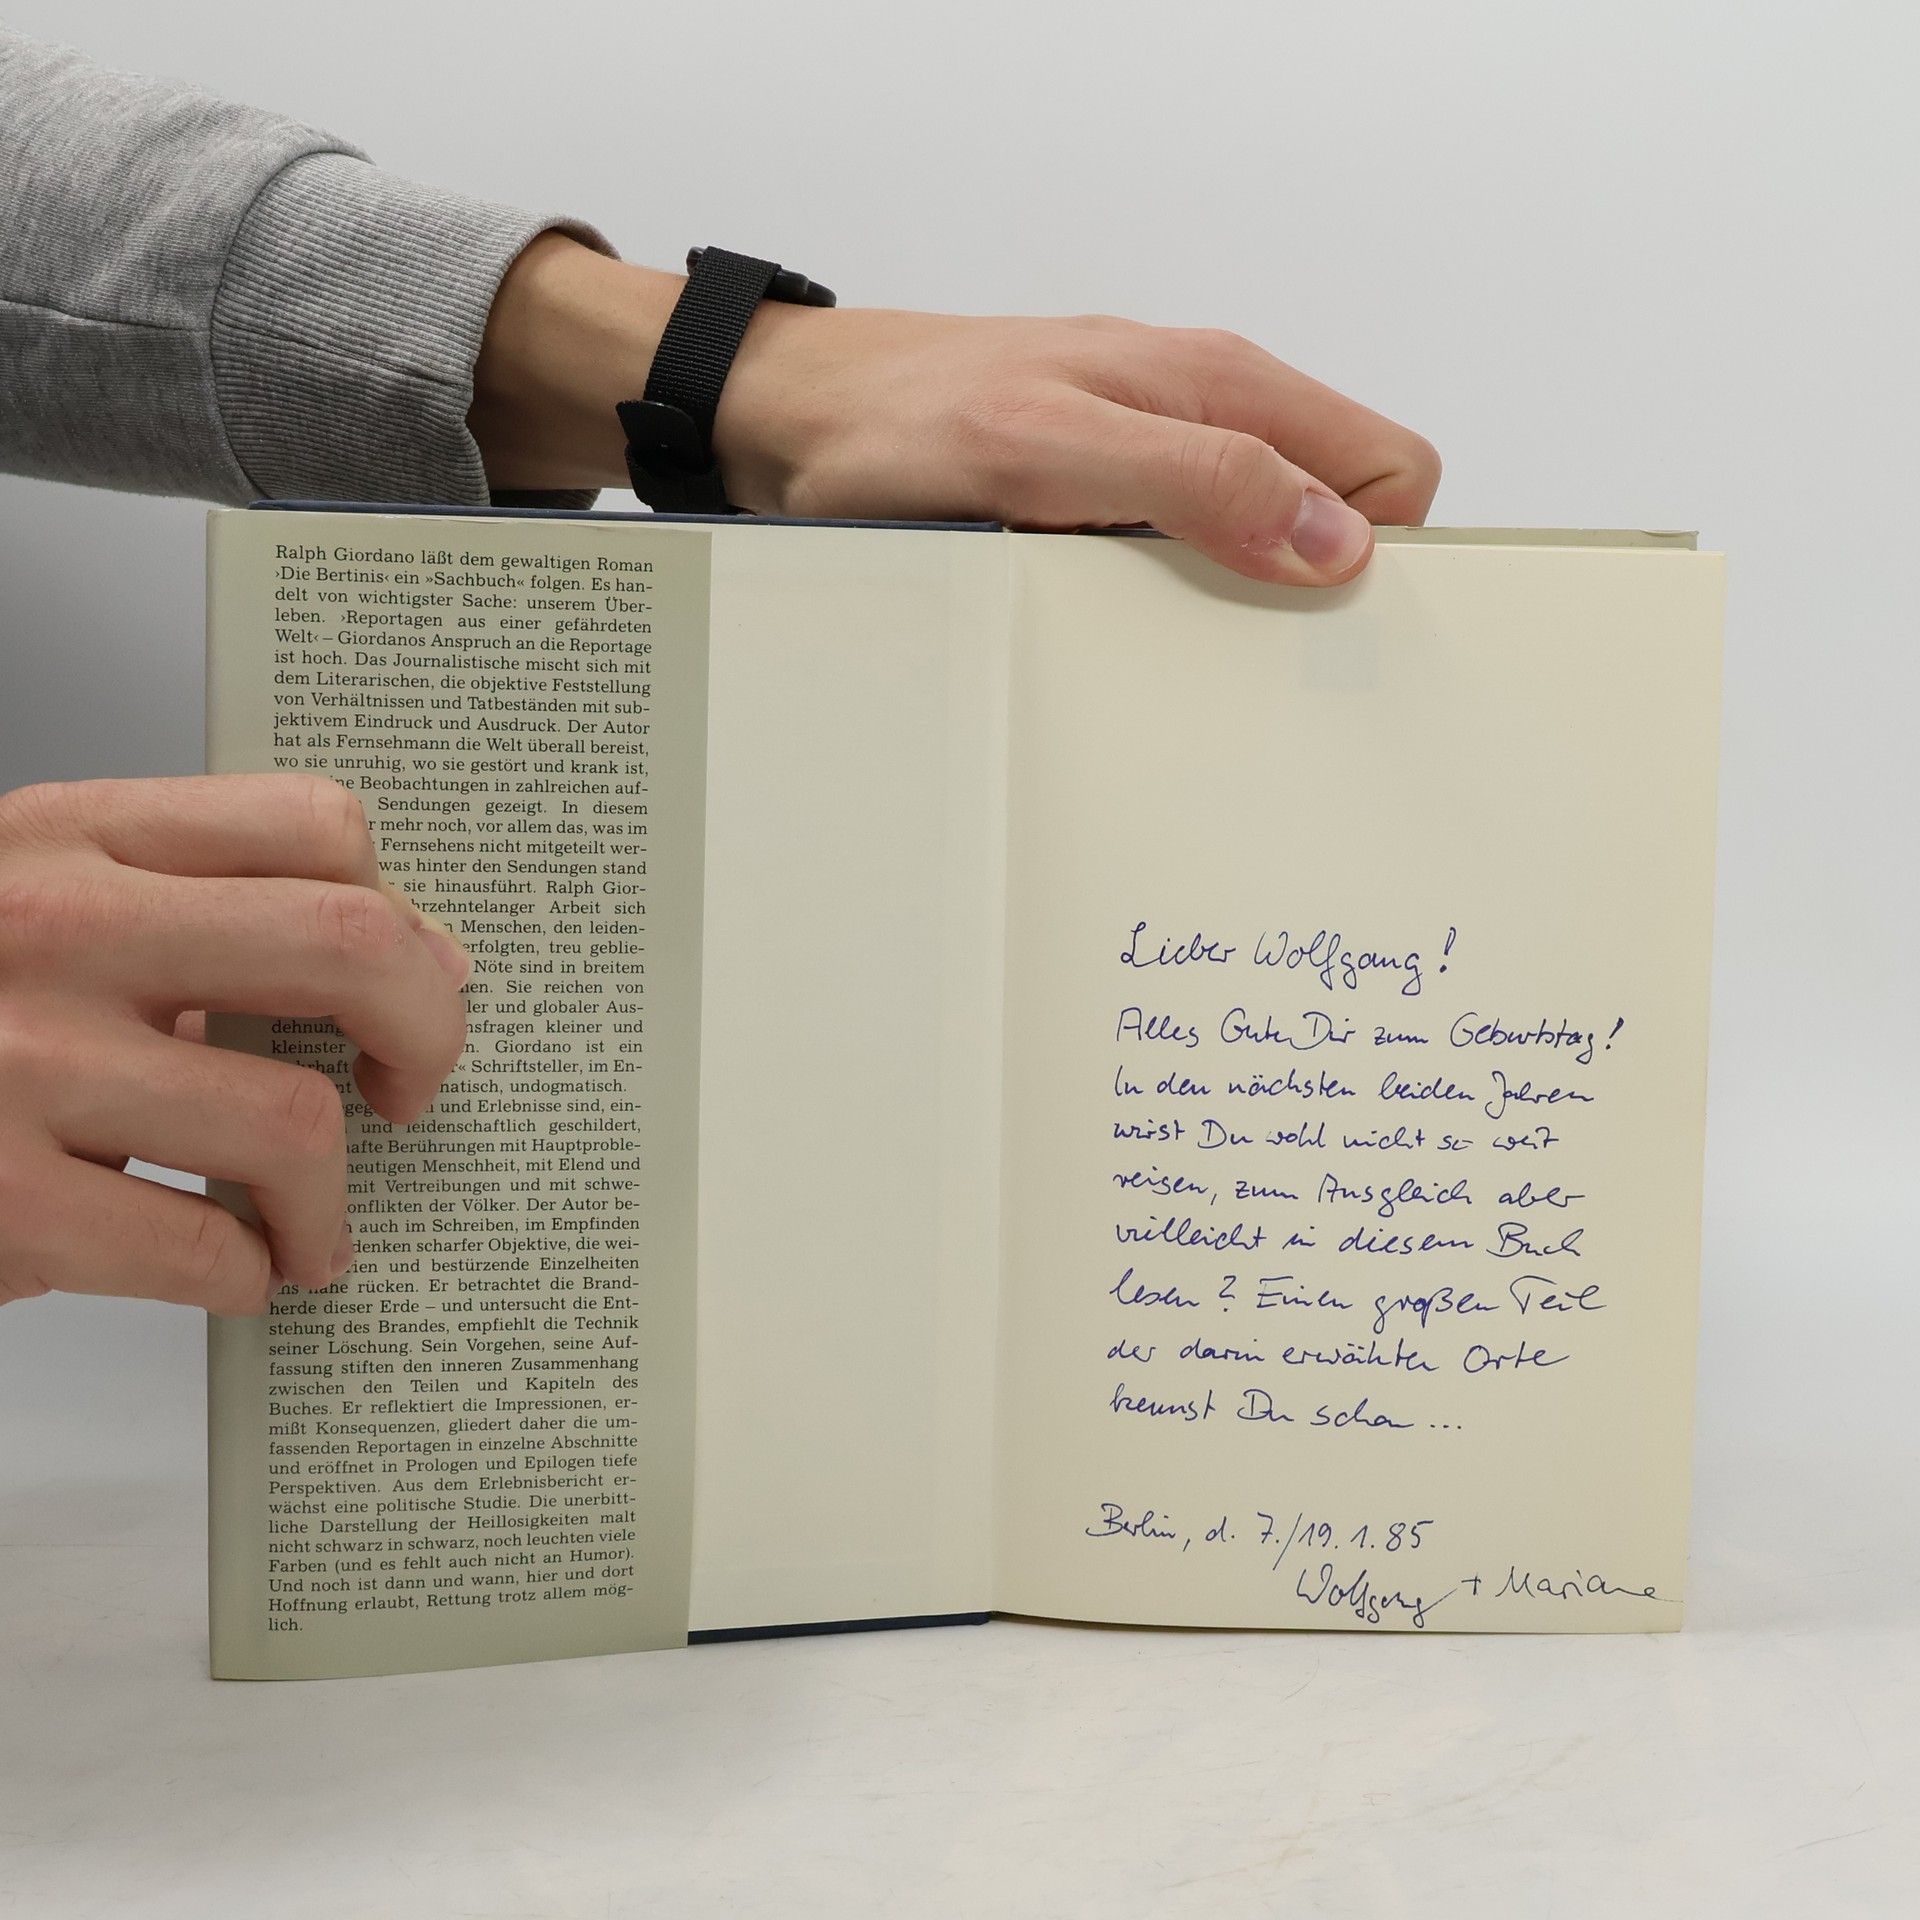 Ralph Giordano läßt dem gewaltigen Roman
›Die Bertinis‹ ein »Sachbuch« folgen. Es han-
delt von wichtigster Sache: unserem Über-
leben. ›Reportagen aus einer gefährdeten
Welt‹ – Giordanos Anspruch an die Reportage
ist hoch. Das Journalistische mischt sich mit
dem Literarischen, die objektive Feststellung
von Verhältnissen und Tatbeständen mit sub-
jektivem Eindruck und Ausdruck. Der Autor
hat als Fernsehmann die Welt überall bereist,
wo sie unruhig, wo sie gestört und krank ist,
Beobachtungen in zahlreichen auf-
Sendungen gezeigt. In diesem
mehr noch, vor allem das, was im
Fernsehens nicht mitgeteilt wer-
was hinter den Sendungen stand
sie hinausführt. Ralph Gior-
hrzehntelanger Arbeit sich
Menschen, den leiden-
erfolgten, treu geblie-
Nöte sind in breitem
Sie reichen von
ler und globaler Aus-
dehnung nsfragen kleiner und
kleinster Giordano ist ein
Schriftsteller, im En-
natisch, undogmatisch.
und Erlebnisse sind, ein-
und leidenschaftlich geschildert,
hafte Berührungen mit Hauptproble-
heutigen Menschheit, mit Elend und
mit Vertreibungen und mit schwe-
onflikten der Völker. Der Autor be-
auch im Schreiben, im Empfinden
denken scharfer Objektive, die wei-
rien und bestürzende Einzelheiten
nahe rücken. Er betrachtet die Brand-
herde dieser Erde – und untersucht die Ent-
stehung des Brandes, empfiehlt die Technik
seiner Löschung. Sein Vorgehen, seine Auf-
fassung stiften den inneren Zusammenhang
zwischen den Teilen und Kapiteln des
Buches. Er reflektiert die Impressionen, er-
mißt Konsequenzen, gliedert daher die um-
fassenden Reportagen in einzelne Abschnitte
und eröffnet in Prologen und Epilogen tiefe
Perspektiven. Aus dem Erlebnisbericht er-
wächst eine politische Studie. Die unerbitt-
liche Darstellung der Heillosigkeiten malt
nicht schwarz in schwarz, noch leuchten viele
Farben (und es fehlt auch nicht an Humor).
Und noch ist dann und wann, hier und dort
Hoffnung erlaubt, Rettung trotz allem mög-
lich.
Lieber Wolfgang!
Alles Gute Dir zum Geburtstag!
In den nächsten beiden Jahren
wirst Du wohl nicht so weit
reisen, zum Ausgleich aber
vielleicht in diesem Buch
lesen? Einen großen Teil
der darin erwähnten Orte
kennst Du schon ...
Berlin, d. 7./19.1.85
Wolfgang + Mariane